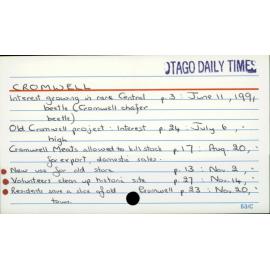 OTAGO DAILY TIMES
CROMWELL
Interest growing in rare Central p. 3 : June 11, 1991
beetle (Cromwell chafer
beetle)
Old Cromwell project : Interest p. 24 : July 6, "
high
Cromwell Meats allowed to kill stock p. 17 : Aug. 20, "
for export, domestic sales.
New use for old store p. 13 : Nov. 2, "
Volunteers clean up historic site p. 27 : Nov. 14, "
Residents save a slice of old Cromwell p. 23 : Nov. 20, "
town.